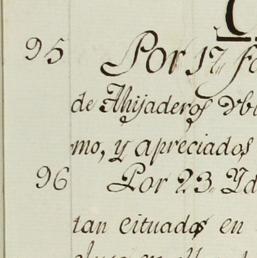 95 Por 17
de Ahijaderos
mo, y apreciados
96 Por 23
tan cituados en